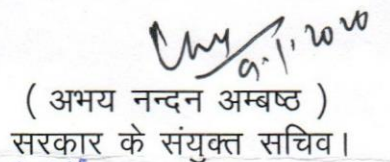 9.1.2020
( अभय नन्दन अम्बष्ठ )
सरकार के संयुक्त सचिव।